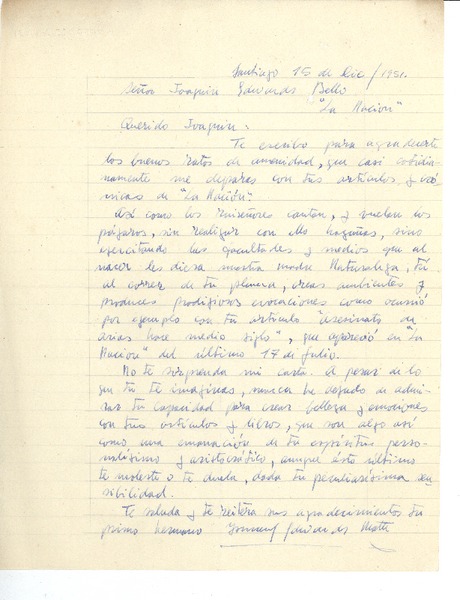 Santiago 15 de Dic/1951.
Señor Joaquín Edwards Bello
"La Nación"
Querido Joaquín:
Te escribo para agradecerte
los buenos ratos de amenidad, que casi cotidia-
namente me deparas con tus artículos y cró-
nicas de "La Nación".
Así como los ruiseñores cantan, y vuelan los
pájaros, sin realizar con ello hazañas, sino
ejercitando las facultades y medios que al
nacer les diera nuestra madre Naturaleza, tú
al correr de tu pluma, creas ambientes y
produces prodigiosas evocaciones como ocurrió
por ejemplo con tu artículo "asesinato de
hace medio siglo", que apareció en "La
Nación" del último 17 de Julio.
No te sorprenda mi carta. A pesar de lo
que tú te imaginas, nunca he dejado de admi-
rar tu capacidad para crear belleza y emociones
con tus artículos y libros, que son algo así
como una emanación de tu espíritu perso-
nalísimo y aristocrático, aunque ésto último
te moleste o te duela, dada tu peculiarísima sen
sibilidad.
Te saluda y te reitera sus agradecimientos tu
primo hermano Edwards Matte